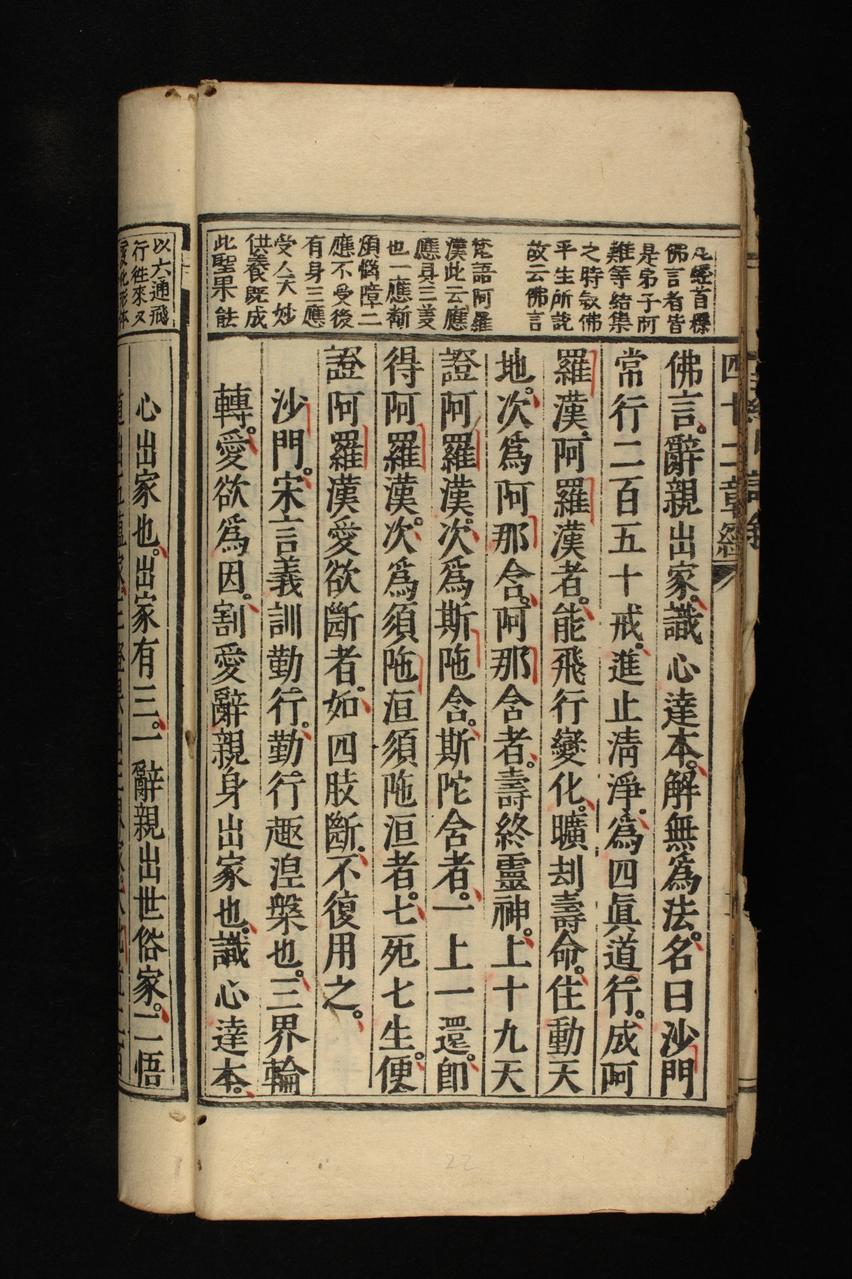 凡經首標
佛言者皆
是弟子阿
難等結集
之時叙佛
平生所說
故云佛言
梵語阿羅
漢此云應
應具三義
也一應斷
煩惱障二
應不受後
有身三應
受人天妙
供養既成
此聖果能
四十二章經
佛言。辭親出家。識心達本。解無為法。名曰沙門
常行二百五十戒。進止清淨。為四眞道行。成阿
羅漢。阿羅漢者。能飛行變化。曠刦壽命。住動天
地。次為阿那含。阿那含者。壽終靈神。上十九天
證阿羅漢。次為斯陁含。斯陀含者。一上一還。卽
得阿羅漢。次為須陁洹。須陁洹者。七死七生。便
證阿羅漢。愛欲斷者。如四肢斷。不復用之。
沙門。宋言義訓勤行。勤行趣涅槃也。三界輪
轉。愛欲為因。割愛辭親。身出家也。識心達本。
以六通飛
行往來又
心出家也。出家有三。一辭親出世俗家。二悟